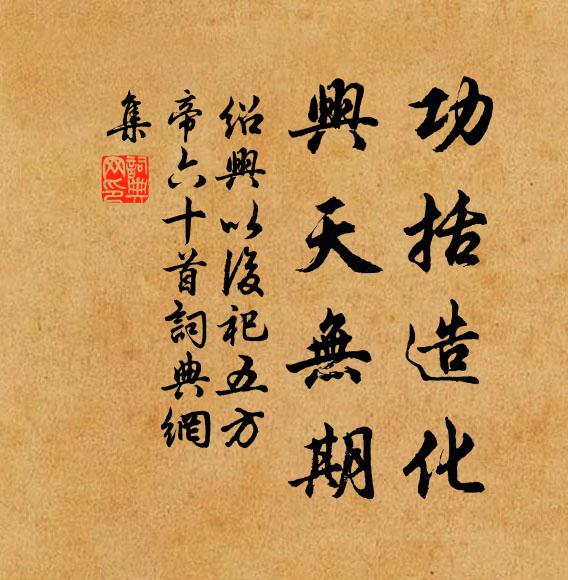 功括造化
興天無期
紹興以後祀五方
帝六十首詞典網
集
詞典網印